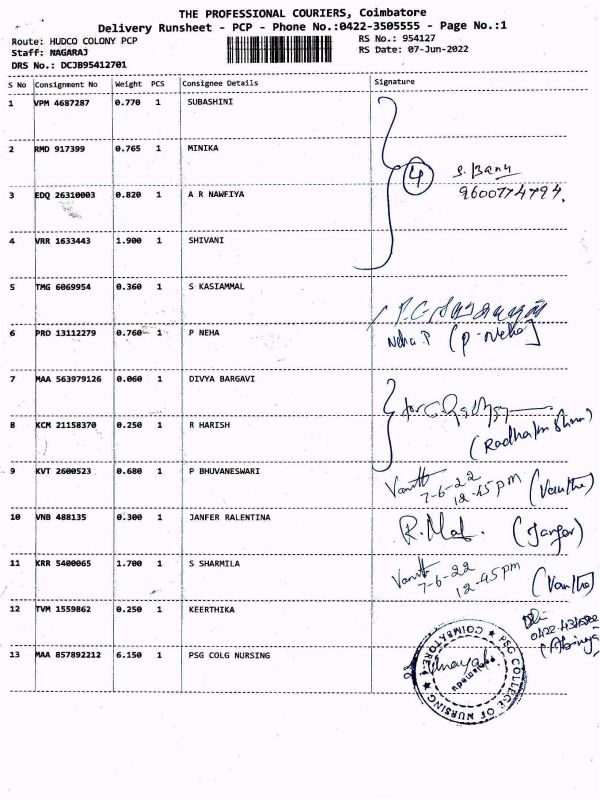 THE PROFESSIONAL COURIERS, Coimbatore
Delivery Runsheet - PCP - Phone No.:0422-3505555 - Page No.:1
Route: HUDCO COLONY PCP
RS No.: 954127
Staff: NAGARAJ
RS Date: 07-Jun-2022
DRS No.: DCJB95412701
S No Consignment No Weight PCS Consignee Details Signature
1 VPM 4687287 0.770 1 SUBASHINI
2 RMD 917399 0.765 1 MINIKA
4 S. Banu
3 EDQ 26310003 0.820 1 A R NAWFIYA
4 VRR 1633443 1.900 1 SHIVANI
5 TMG 6069954 0.360 1 S KASIAMMAL
6 PRO 13112279 0.760 1 P NEHA Neha.P (P-Neha)
7 MAA 563979126 0.060 1 DIVYA BARGAVI
8 KCM 21158370 0.250 1 R HARISH
9 KVT 2600523 0.680 1 P BHUVANESWARI
7-6-22 12-45pm
10 VNB 488135 0.300 1 JANFER RALENTINA
11 KRR 5400065 1.700 1 S SHARMILA
7-6-22 12-45pm
12 TVM 1559862 0.250 1 KEERTHIKA
13 MAA 857892212 6.150 1 PSG COLG NURSING
PSG COLLEGE OF NURSING ★ COIMBATORE ★